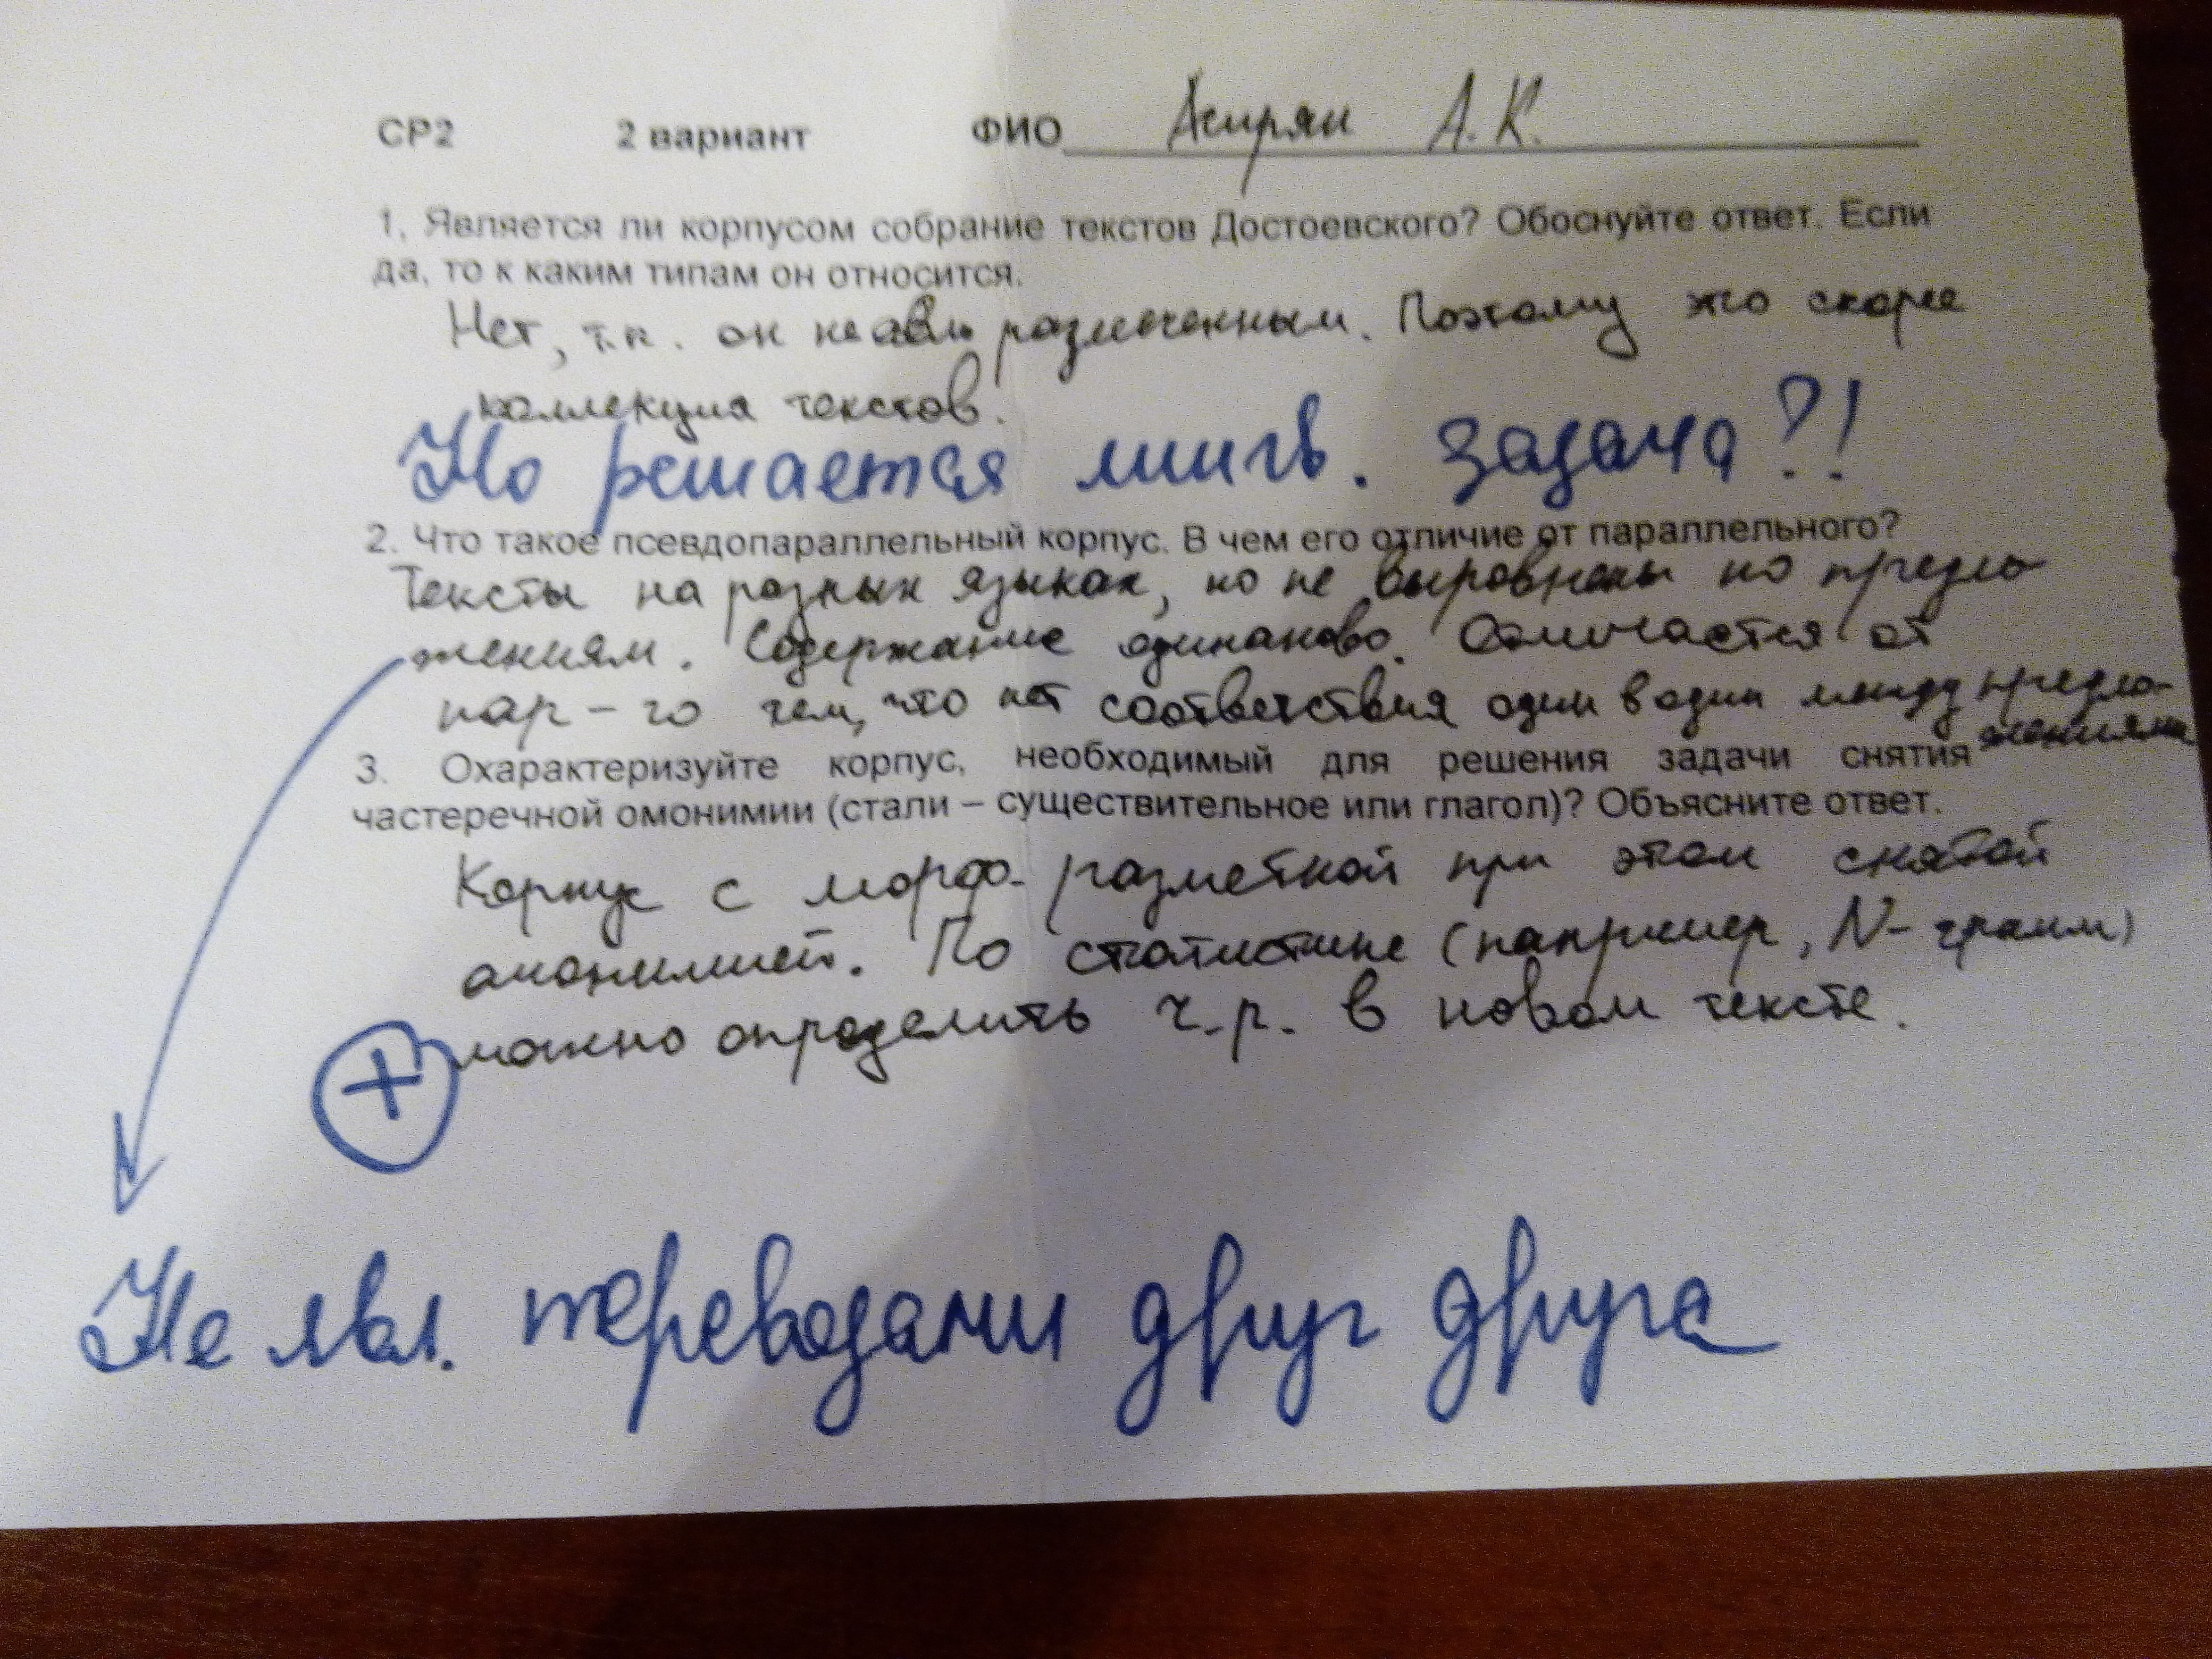 СР2 2 вариант ФИО А. К.
1. Является ли корпусом собрание текстов Достоевского? Обоснуйте ответ. Если
да, то к каким типам он относится.
Нет, т.к. он не явл размеченным. Поэтому это скорее
коллекция текстов.
Но решается лингв. задача?!
2. Что такое псевдопараллельный корпус. В чем его отличие от параллельного?
Тексты на разных языках, но не выровнены по предло
жениям. Содержание одинаково. Отличается от
пар-го тем, что нет соответствия один в один между предло-
жениями
3. Охарактеризуйте корпус, необходимый для решения задачи снятия
частеречной омонимии (стали – существительное или глагол)? Объясните ответ.
Корпус с морф. разметкой при этом снятой
омонимией. По статистике (например, N-грамм)
можно определить ч.р. в новом тексте.
+
Не явл. переводами друг друга